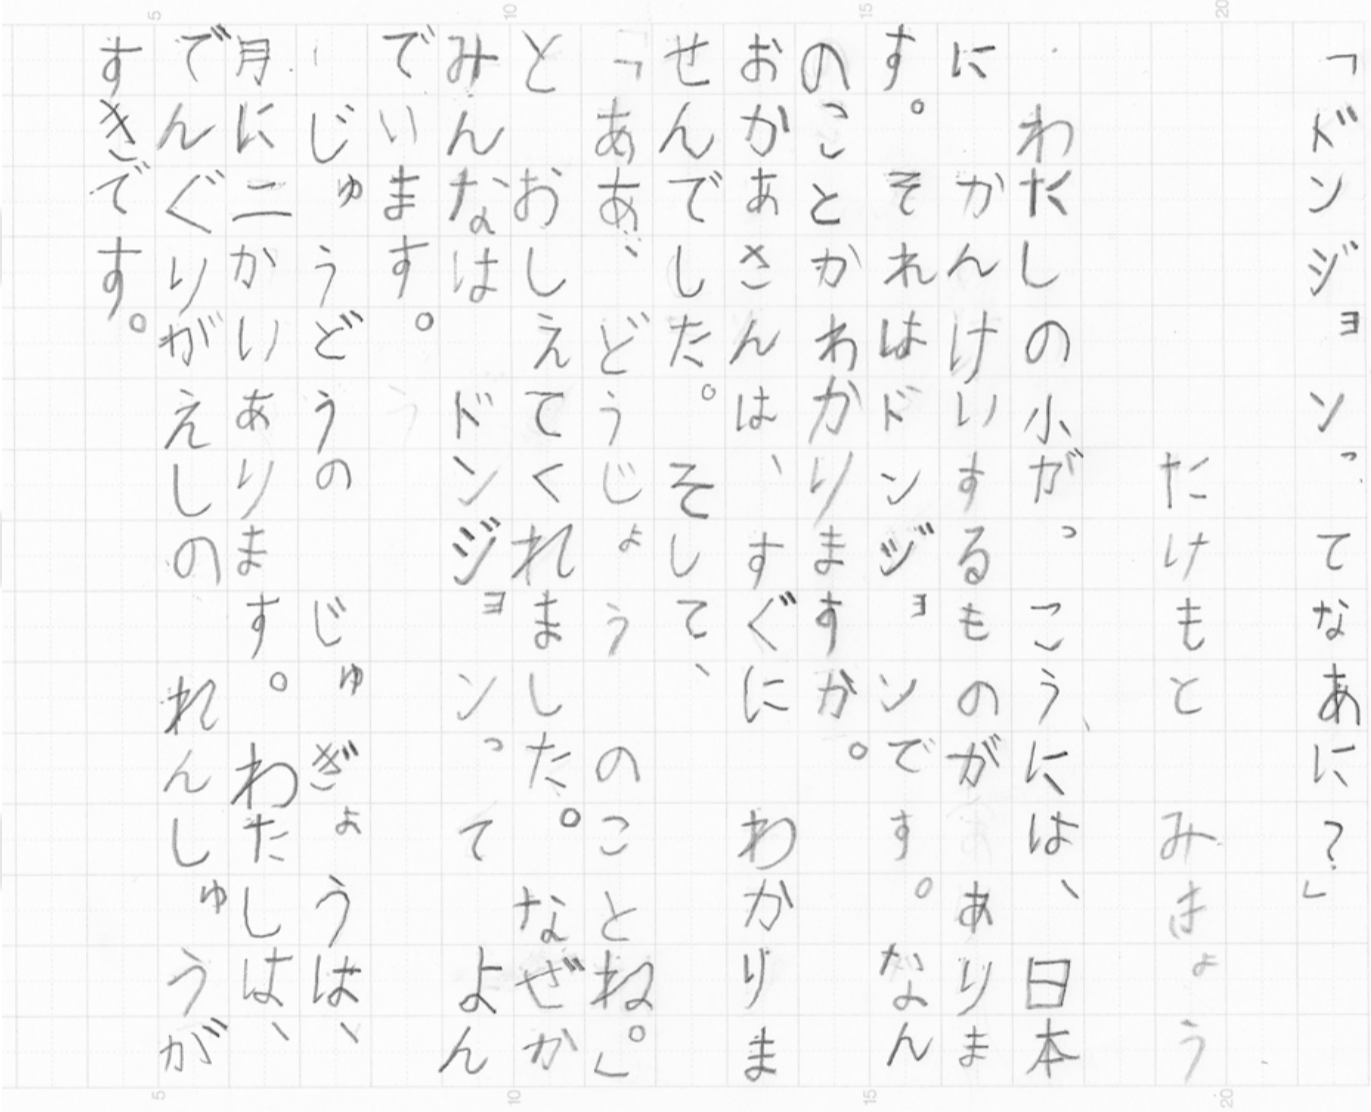 「ドンジョンってなあに?」
たけもと みきょう
わたしの小がっこうには、日本
にかんけいするものがありま
す。それはドンジョンです。なん
のことかわかりますか。
おかあさんは、すぐに わかりま
せんでした。そして、
「ああ、どうじょう のことね。」
と おしえてくれました。なぜか
みんなは ドンジョンってよん
でいます。
じゅうどうの じゅぎょうは、
月に二かいあります。わたしは、
でんぐりがえしの れんしゅうが
すきです。
5 10 15 20
5 10 15 20